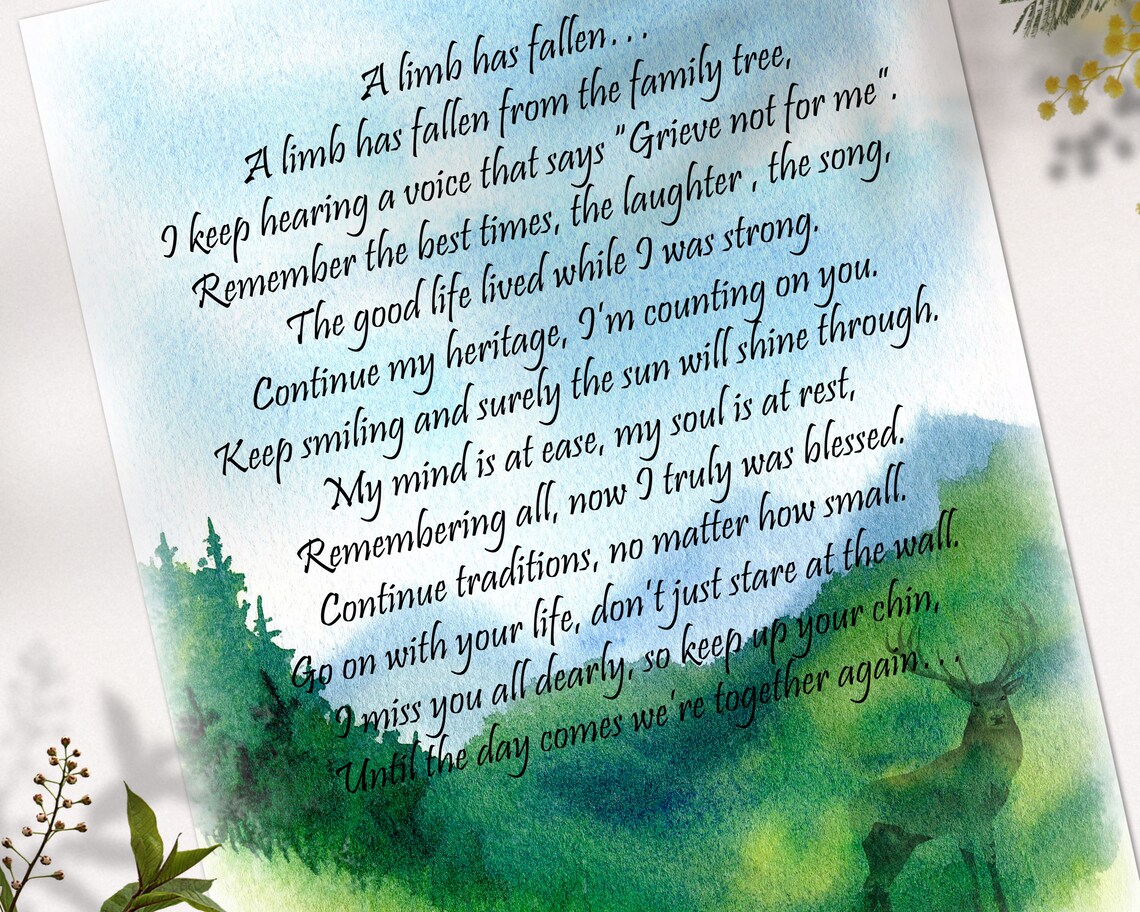 A limb has fallen...
A limb has fallen from the family tree,
I keep hearing a voice that says "Grieve not for me".
Remember the best times, the laughter , the song,
The good life lived while I was strong.
Continue my heritage, I'm counting on you.
Keep smiling and surely the sun will shine through.
My mind is at ease, my soul is at rest,
Remembering all, now I truly was blessed.
Continue traditions, no matter how small.
Go on with your life, don't just stare at the wall.
I miss you all dearly, so keep up your chin,
Until the day comes we're together again...